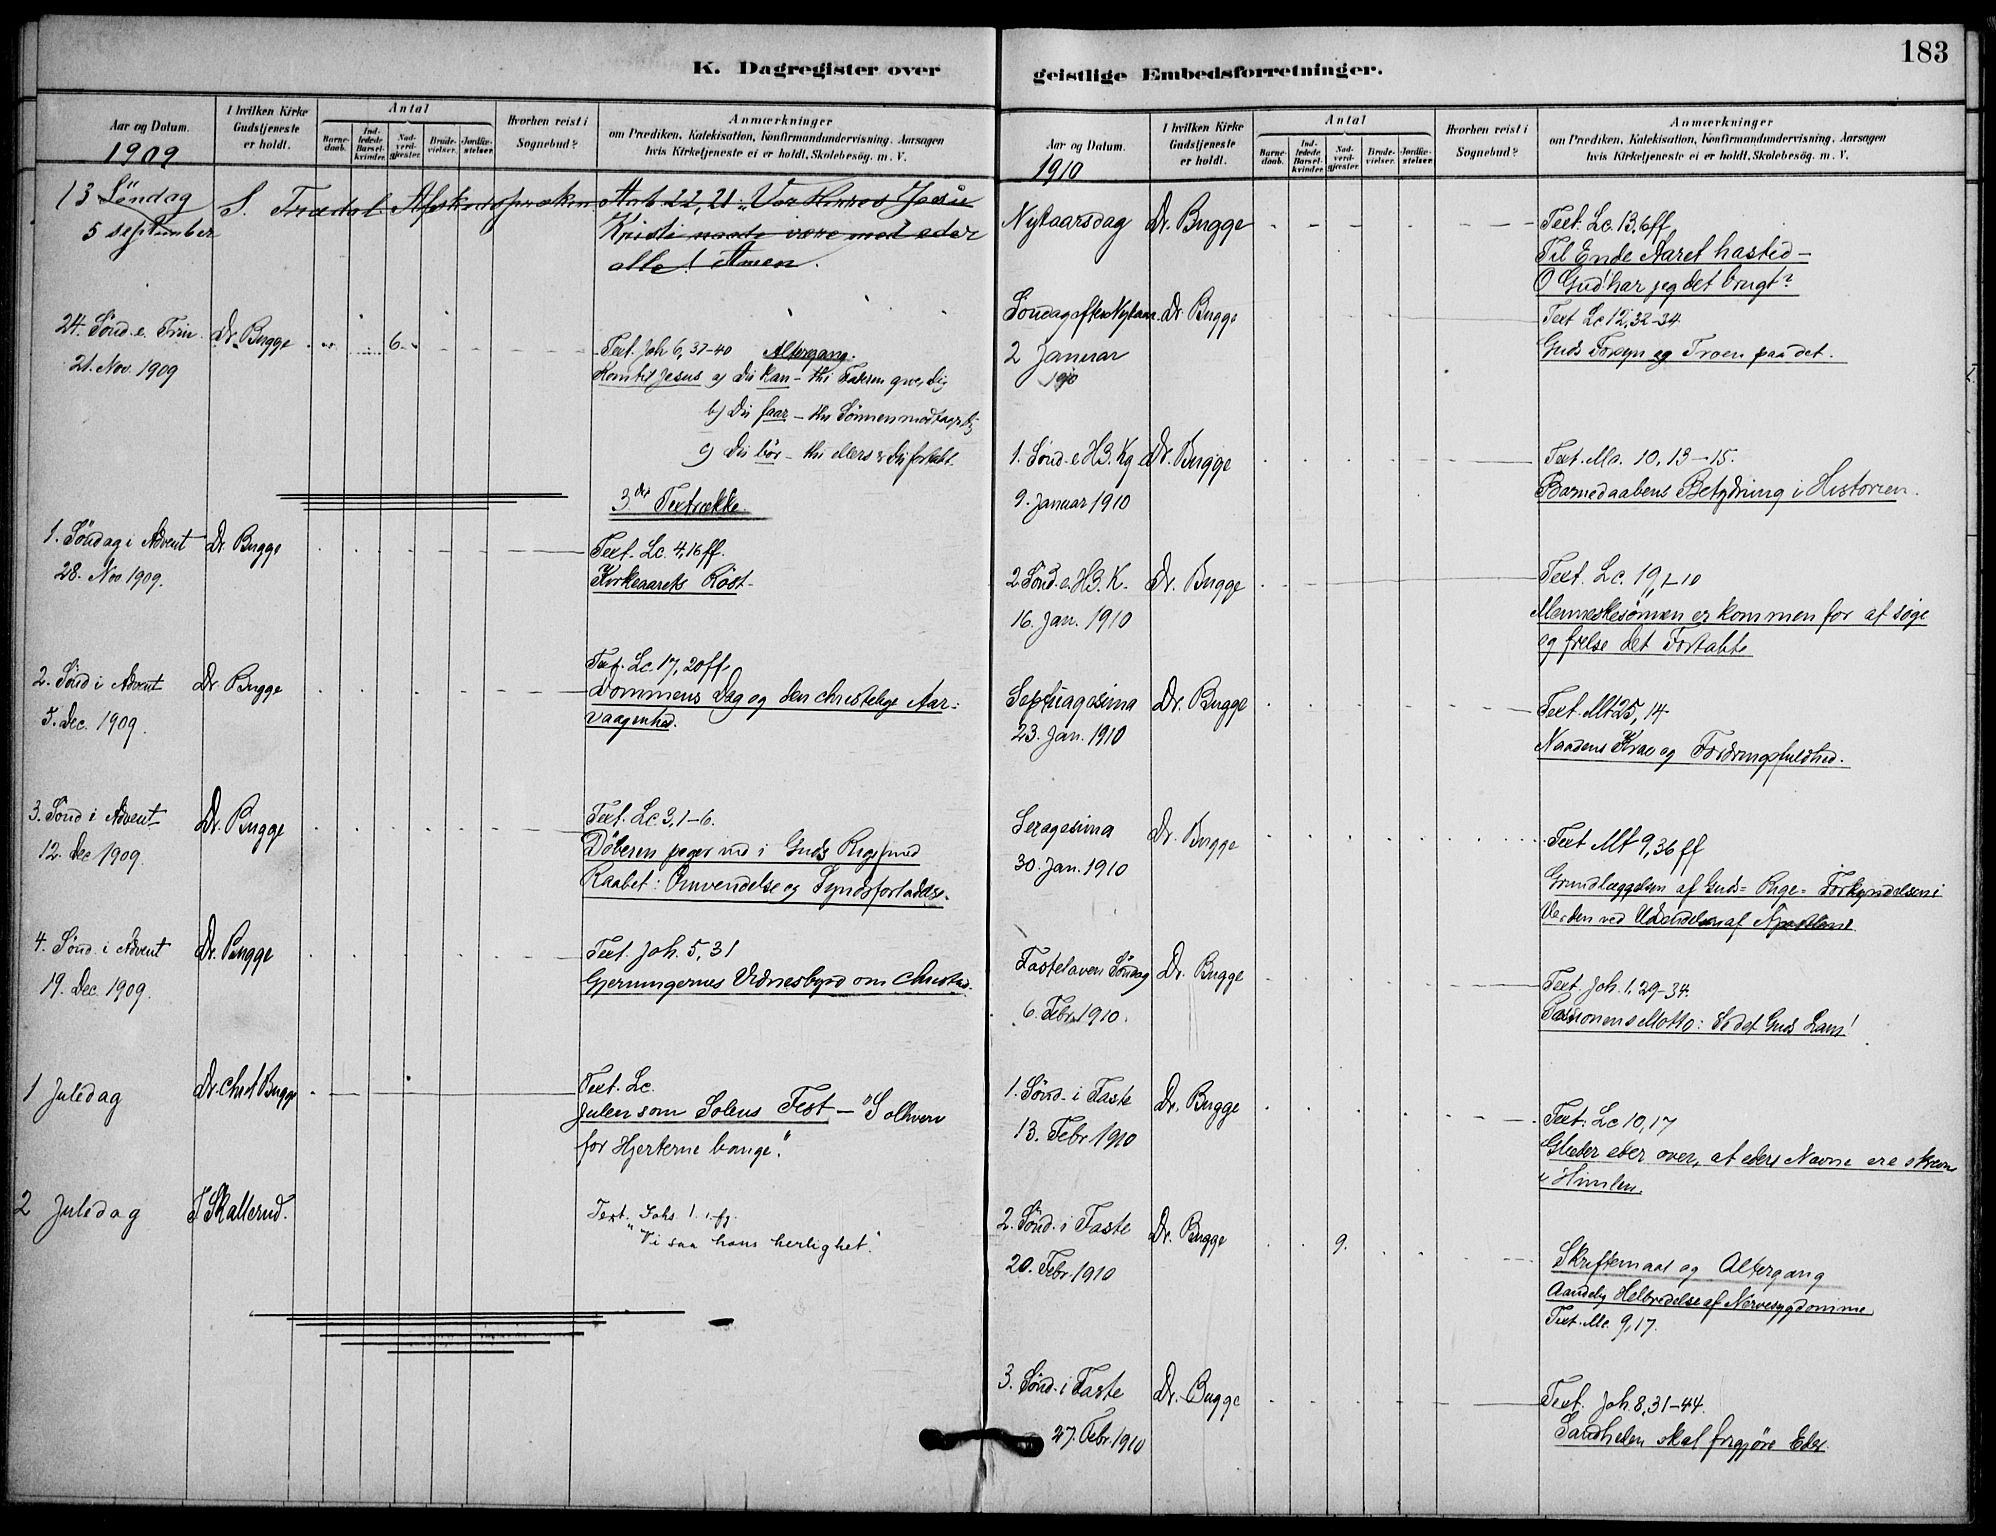 K. Dagregister over
Aar og Datum.
1909
I hvilken Kirke Gudstjeneste er holdt.
Antal
Barne-daab.
Ind-ledede Barsel-kvinder.
Nad-verd-gjester.
Brude-vielser.
Jordfæ-stelser.
Hvorhen reist i Sognebud?
Anmærkninger
om Prædiken, Katekisation, Konfirmandundervisning. Aarsagen
hvis Kirketjeneste ei er holdt. Skolebesøg. m. V.
13 Søndag S. Trædal. Afskedspræken Aab. 22, 21: "Vor Herres Jesu
5 september Kristi naade være med eder
alle! Amen.
24. Sønd. e. Trin. Dr. Bugge 6
21. Nov. 1909
Text. Joh 6, 37-40 Altergang.
Kom til Jesus a) Du kan - thi Faderen giver dig
b) Du faar - thi Sønnen modtager dig
c) Du bør - thi ellers er du fortabt.
3die Textrække.
1. Søndag i Advent Dr. Bugge
28. Nov. 1909.
Text. Lc. 4,16 ff.
Kirkeaarets Røst.
2. Sønd i Advent Dr. Bugge
5. Dec. 1909.
Text. Lc. 17, 20 ff.
Dommens Dag og den christelige Aar-
vaagenhed.
3. Sønd i Advent Dr. Bugge
12. Dec 1909.
Text. Lc 3, 1-6.
Døberen peger ind i Guds Rige med
Raabet: Omvendelse og Syndsforladelse.
4. Sønd. i Advent Dr. Bugge
19. Dec. 1909.
Text. Joh. 5, 31
Gjerningernes Vidnesbyrd om Christus.
1 Juledag Dr. Christ Bugge
Text. Lc.
Julen som Solens Fest - "Solhverv
for Hjerterne bange."
2 Juledag J Skallerud.
Text. Johs 1.
"Vi saa hans herlighet."
geistlige Embedsforretninger.
183
Aar og Datum.
1910
I hvilken Kirke Gudstjeneste er holdt.
Antal
Barne-daab.
Ind-ledede Barsel-kvinder.
Nad-verd-gjester.
Brude-vielser.
Jordfæ-stelser.
Hvorhen reist i Sognebud?
Anmærkninger
om Prædiken, Katekisation, Konfirmandundervisning. Aarsagen
hvis Kirketjeneste ei er holdt. Skolebesøg. m. V.
Nytaarsdag Dr. Bugge
Text. Lc. 13.6ff
Til Ende Aaret hasted -
O Gud! har jeg det brugt?
Søndag efter Nytaar. Dr. Bugge
2 Januar
1910
Text Lc 12, 32-34
Guds Forsyn og Troen paa det.
1. Sønd. e H3. Kg Dr. Bugge
9. Januar 1910
Text. Mc. 10, 13-15.
Barnedaabens Betydning i Historien.
2. Sønd. e. H3. K. Dr. Bugge
16. Jan. 1910
Text. Lc. 19, 1-10
Menneskesønnen er kommen for at søge
og frelse det Fortabte
Septuagesima Dr. Bugge
23. Jan. 1910
Text. Mt 25, 14.
Naadens Krav og Fordringsfuldhed.
Sexagesima Dr. Bugge
30. Jan. 1910
Text Mt 9, 36 ff
Grundlæggelsen af Guds- Rige- Forkyndelsen i
Verden ved Udsendelsen af Apostlene
Fastelaven Søndag Dr. Bugge
6. Febr. 1910.
Text. Joh. 1, 29-34.
Passionens Motto: Se det Guds Lam!
1. Sønd. i Faste Dr. Bugge
13. Febr 1910
Text: Lc 10, 17
Glæder eder over, at eders Navne ere skrevne
i Himlen.
2. Sønd. i Faste Dr. Bugge 9.
20. Febr. 1910
Skriftemaal og Altergang
Aandelig Helbredelse af Nervesygdomme
Text. Mc. 9, 17.
3. Sønd. i Faste Dr. Bugge
27. Febr. 1910
Text. Joh. 8, 31-44.
Sandheden skal frigjøre Eder.